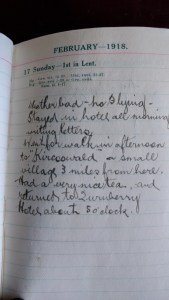 FEBRUARY—1918.
17 Sunday—1st in Lent.
Weather bad - no flying.
Stayed in hotel all morning
writing letters.
Went for walk in afternoon
to "Kirkoswald" a small
village 3 miles from here.
Had a very nice tea, and
returned to Turnberry
Hotel about 5 o'clock.